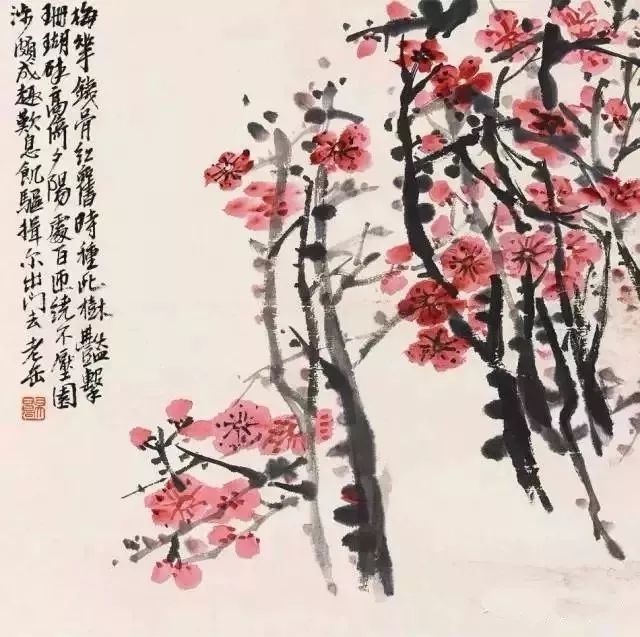 梅華鐵骨紅舊時種此樹豔擊
珊瑚碎高倚夕陽處百匝繞不厭園
涉頗成趣歎息飢驅揮尔出門去老缶